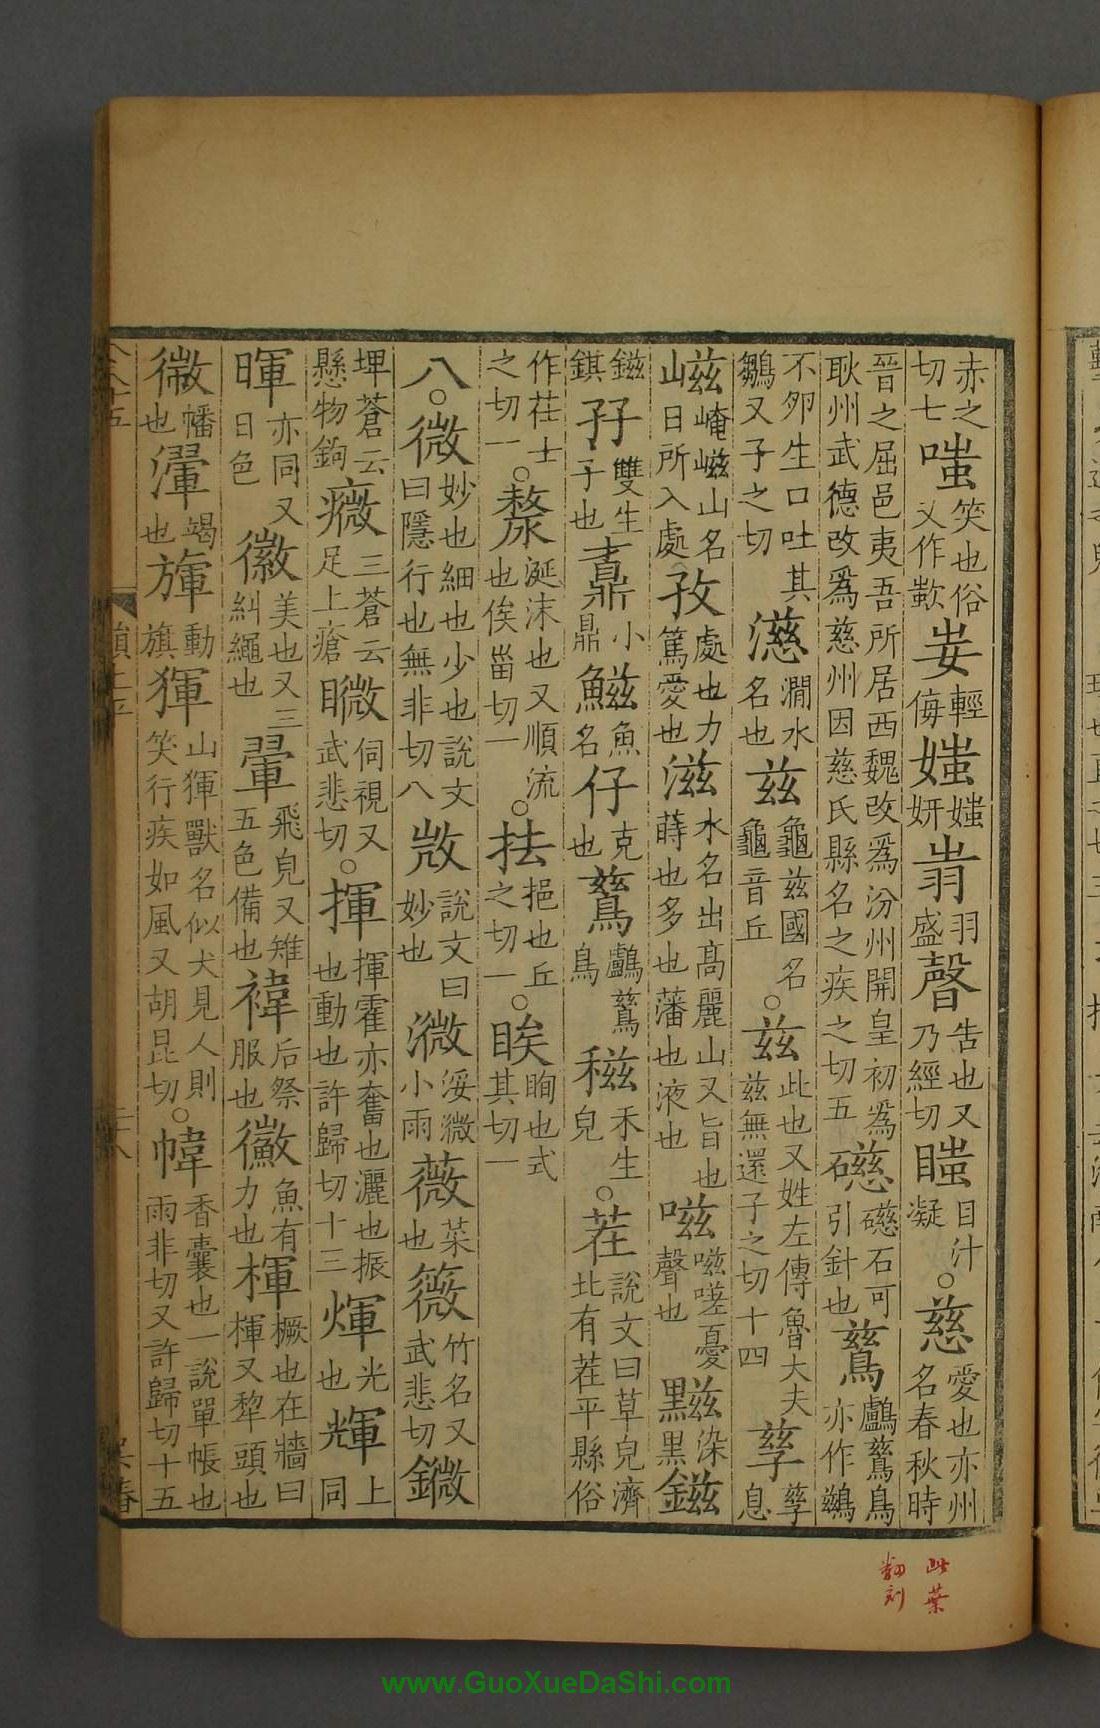 赤之切七嗤笑也俗又作歖㞩輕侮媸媸妍㫮羽盛㲈告也又乃經切瞝目汁凝○慈愛也亦州名春秋時
晉之屈邑夷吾所居西魏改爲汾州開皇初爲耿州武德改爲慈州因慈氏縣名之疾之切五礠礠石可引針也鶿鸕鶿鳥亦作鷀
不夘生口吐其鶵又子之切濨澗水名也兹龜兹國名龜音丘○兹此也又姓左傳魯大夫兹無還子之切十四孳孳息
嵫崦嵫山名日所入處孜處也力篤愛也滋水名出髙麗山又旨也蒔也多也藩也液也嗞嗞嗟憂聲也黰染黑鎡
鎡錤孖雙生子也鼒小鼎鰦魚名仔克也鶿鸕鶿鳥稵禾生皃○茬說文曰草皃濟北有茬平縣俗
作茌士之切一○漦涎沫也又順流也俟甾切一○抾挹也丘之切一○眱眴也式其切一
八○微妙也細也少也說文曰隱行也無非切八𢼸說文曰妙也溦浽溦小雨薇菜也𥳣竹名又武悲切鑖
埤蒼云懸物鉤癓三蒼云足上瘡𥌰伺視又武悲切○揮揮霍亦奮也灑也振也動也許歸切十三煇光也輝上同
暉亦同又日色徽美也又三糾繩也翬飛皃又雉五色備也褘后祭服也𩽩魚有力也楎橛也在牆曰楎又犂頭也
㣲幡也㡓竭也㫎動旗㹆山㹆獸名似犬見人則笑行疾如風又胡昆切○幃香囊也一說單帳也雨非切又許歸切十五
此葉
翻刻
www.GuoXueDaShi.com